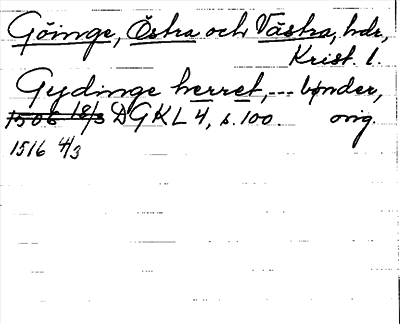 Göinge, Östra och Västra, hdr,
Krist. l.
Gydinge herret, --- bønder,
1506 18/3 DGKL 4, s. 100. orig.
1516 4/3